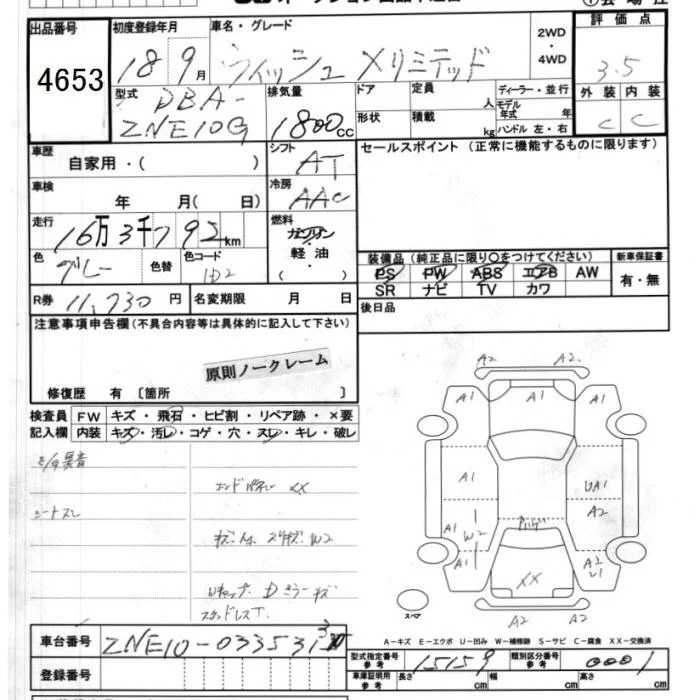 出品番号 初度登録年月 車名・グレード 2WD・4WD 評価点
4653 18 9月 ウィッシュ Xリミテッド 3.5
型式 DBA-ZNE10G 排気量 1800cc ドア 定員 人 ディーラー・並行 外装 内装
形状 積載 kg モデル年式 年 ハンドル 左・右 C C
車歴 自家用・( ) シフト AT セールスポイント (正常に機能するものに限ります)
車検 年 月( 日) 冷房 AAC
走行 16万3千792km 燃料 ガソリン・軽油・( )
色 グレー 色替 色コード 1D2 装備品 (純正品に限り○をつけてください) 新車保証書
PS PW ABS エアB AW 有・無
SR ナビ TV カワ
R券 11,730円 名変期限 月 日 後日品
注意事項申告欄(不具合内容等は具体的に記入して下さい)
原則ノークレーム
修復歴 有〔箇所 〕
検査員 FW キズ・飛石・ヒビ割・リペア跡・×要
記入欄 内装 キズ・汚レ・コゲ・穴・スレ・キレ・破レ
異音
エンドパネル XX
シートスレ
W2
Dミラーキズ
スタッドレスT
A2 A2
A1 A1 A1
A1 UA1
A2
A1 W2
A1 XX A2
U1
A2 A2
スペア
A-キズ E-エクボ U-凹み W-補修跡 S-サビ C-腐食 XX-交換済
車台番号 ZNE10-0335313
型式指定番号 参考 15159 類別区分番号 参考 0001
登録番号 車庫証明用 参考 長さ cm 幅 cm 高さ cm